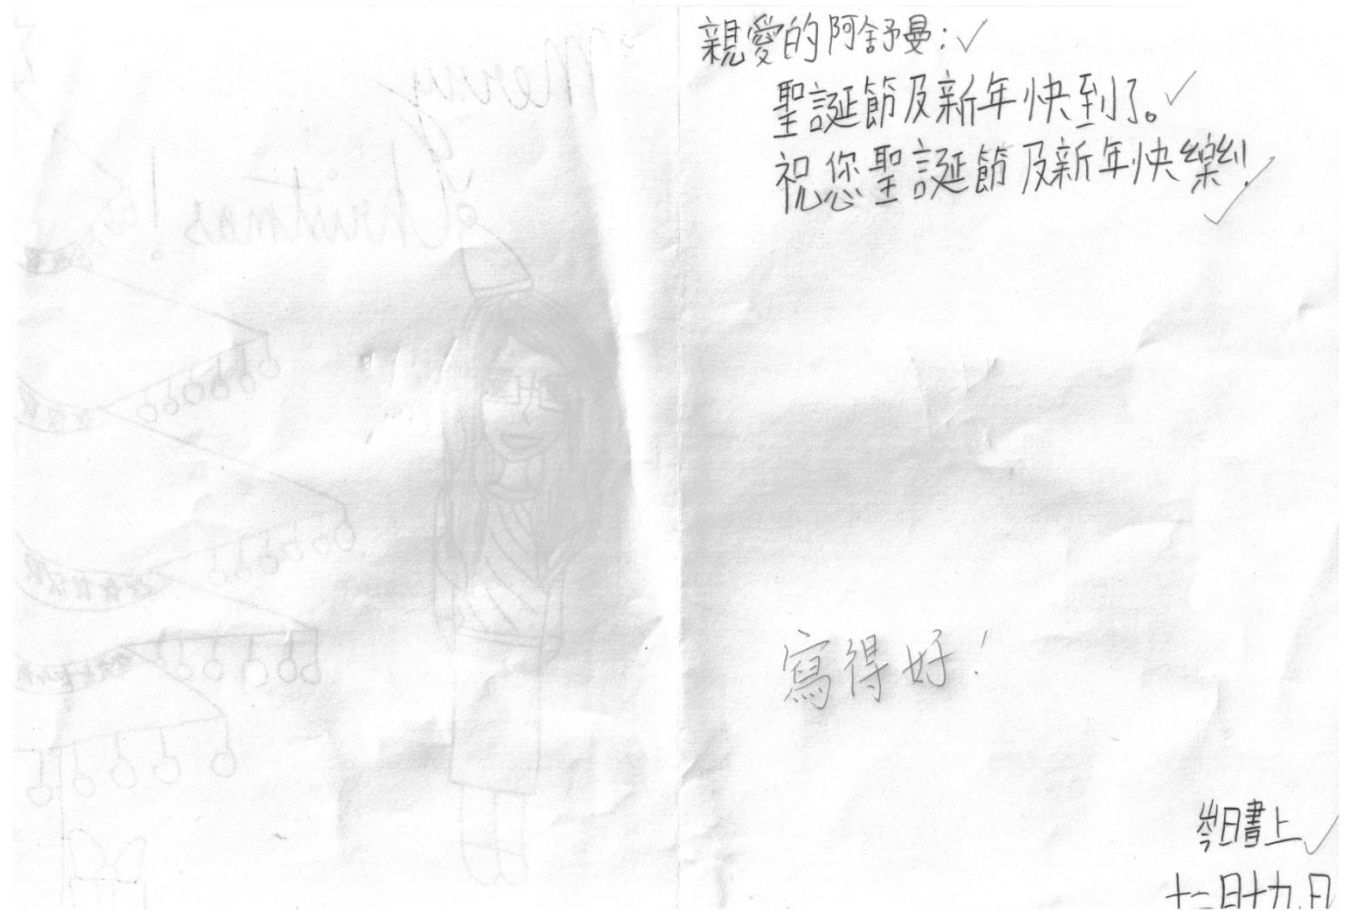 Merry
Christmas!
親愛的阿舒曼：✓
聖誕節及新年快到了。✓
祝您聖誕節及新年快樂！✓
寫得好！
岑日書上 ✓
十二月十九日